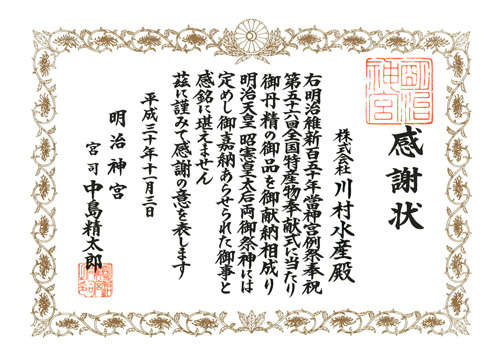 感謝状
株式会社 川村水産殿
右明治維新百五十年當神宮例祭奉祝
第五十六回全国特産物奉献式に当たり
御丹精の御品を御献納相成り
明治天皇 昭憲皇太后両御祭神には
定めし御嘉納あらせられた御事と
感銘に堪えません
茲に謹みて感謝の意を表します
平成三十年十一月三日
明治神宮
宮司 中島精太郎
明治神宮